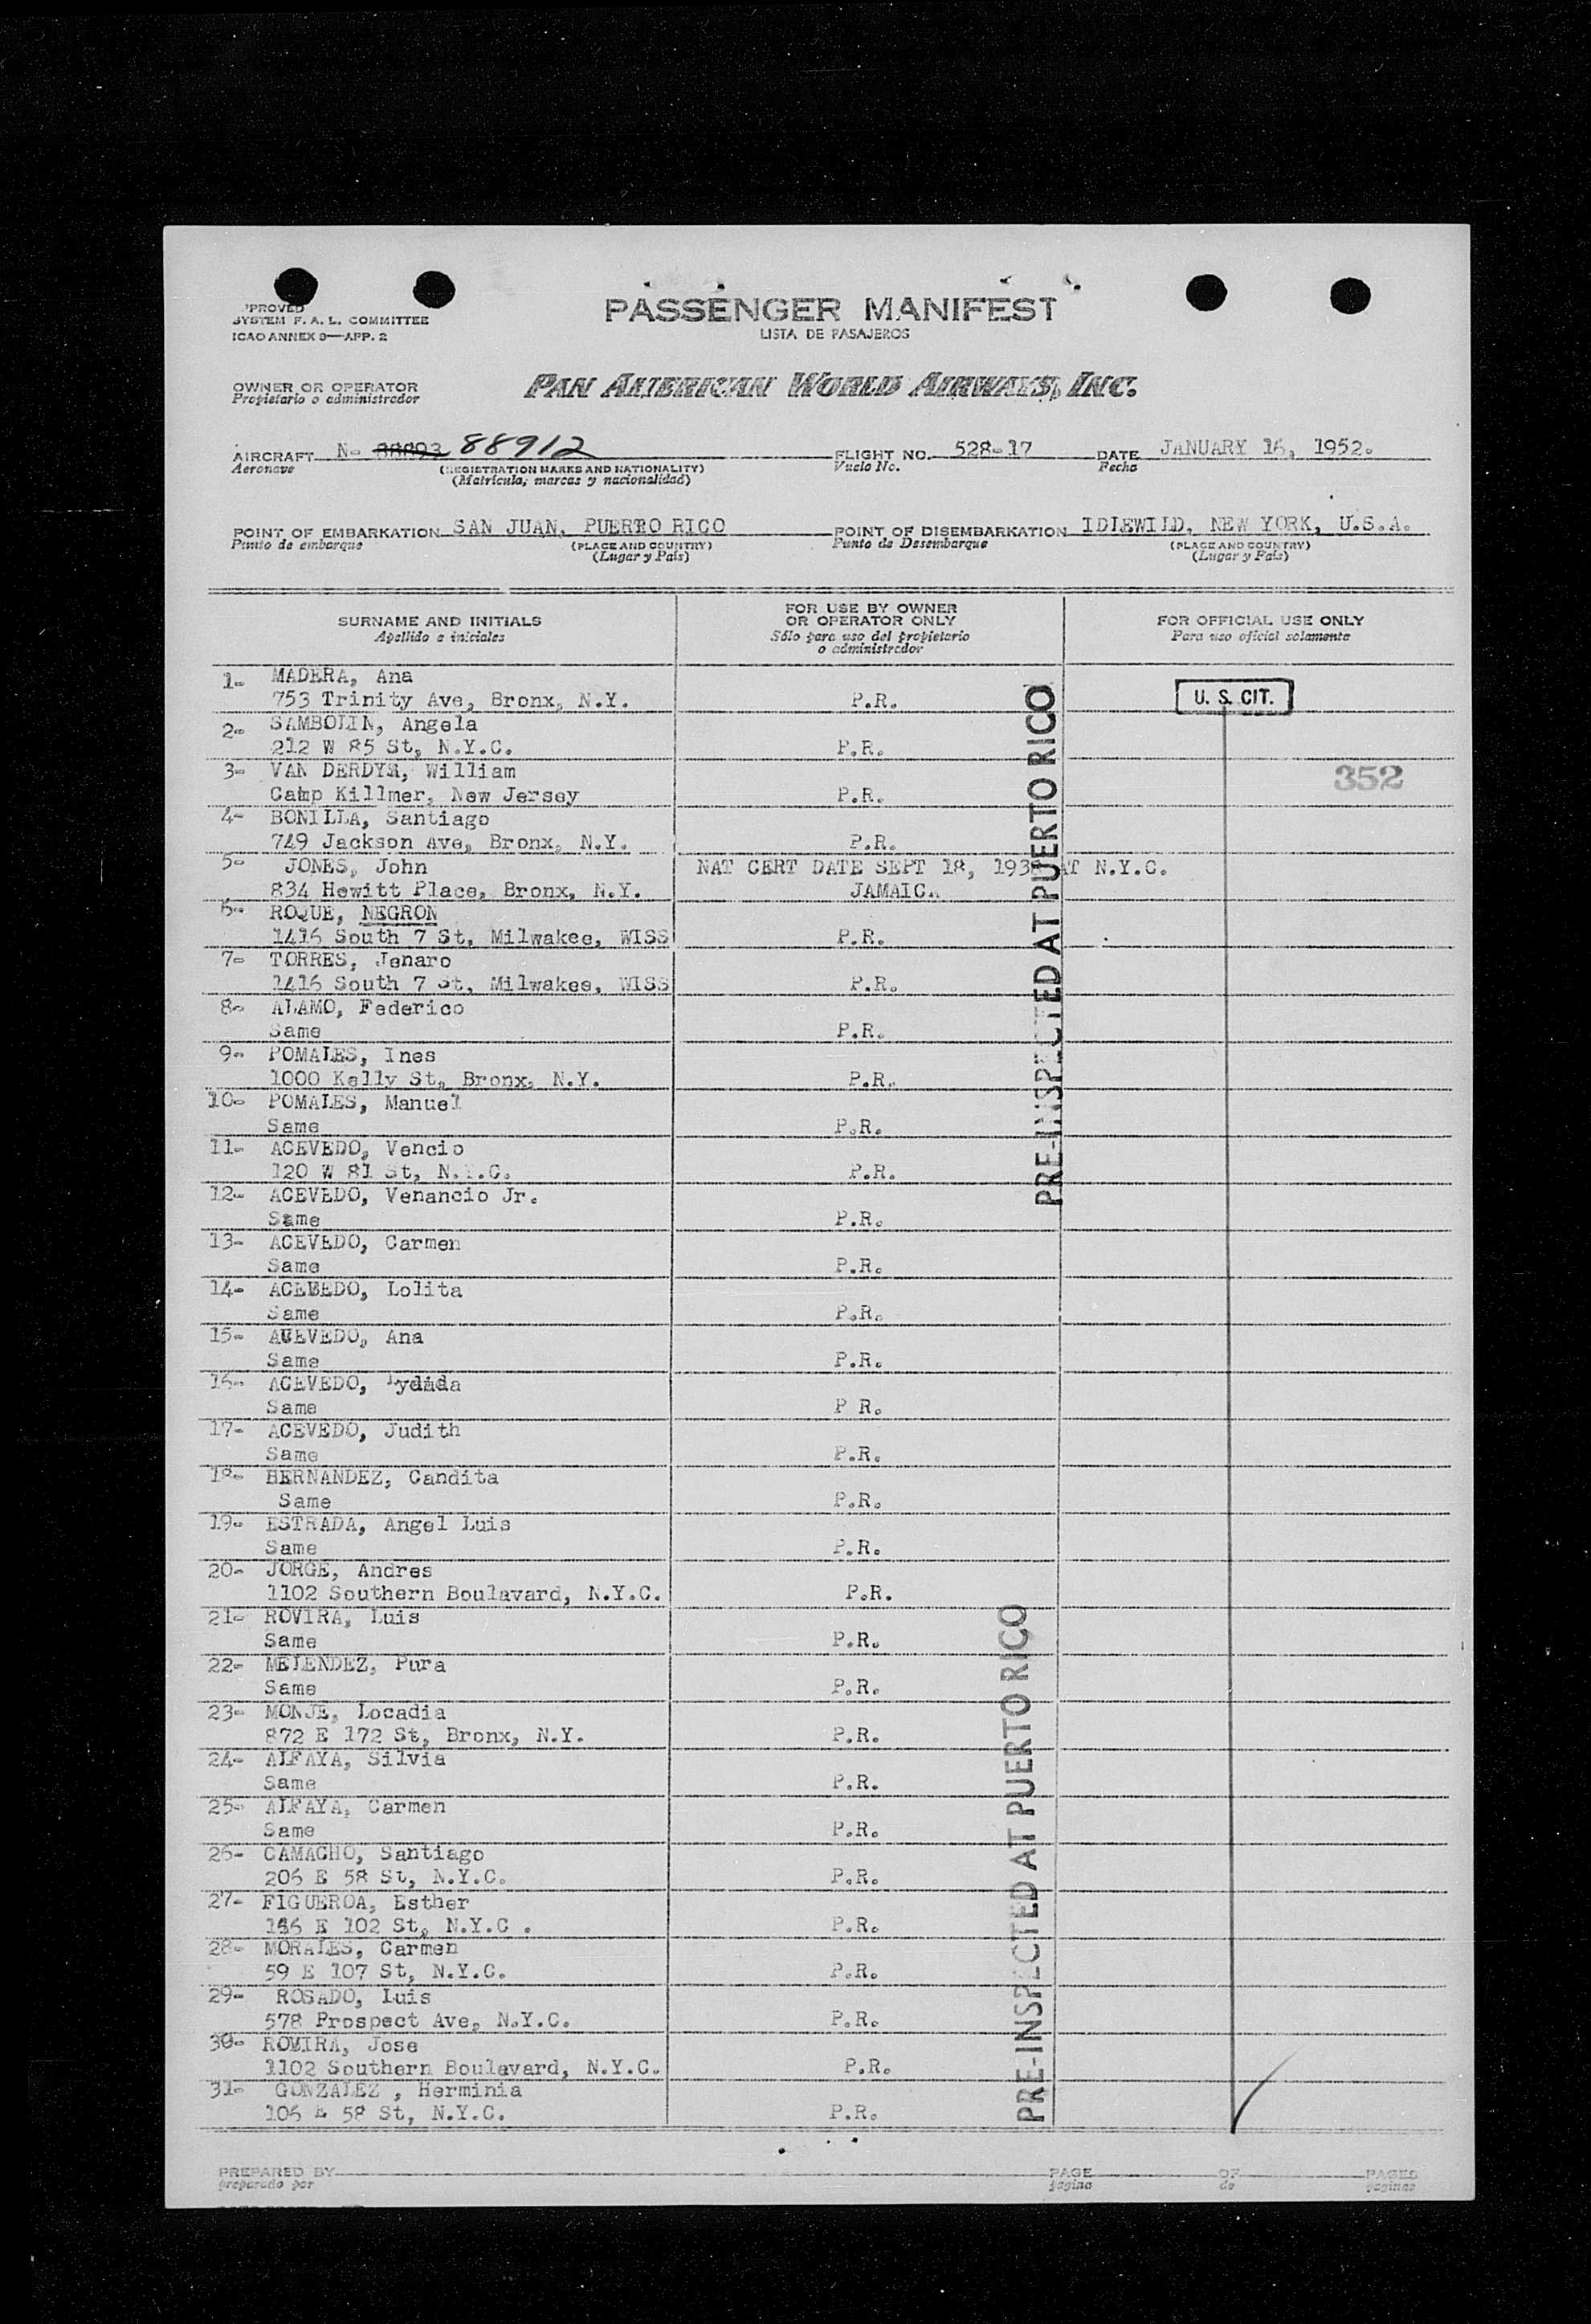 PROVED
SYSTEM F. A. L. COMMITTEE
ICAO ANNEX 9—APP. 2
PASSENGER MANIFEST
LISTA DE PASAJEROS
OWNER OR OPERATOR
Propietario o administrador
PAN AMERICAN WORLD AIRWAYS, INC.
AIRCRAFT N- 88893 88912 FLIGHT NO. 528-17 DATE JANUARY 16, 1952.
Aeronave (REGISTRATION MARKS AND NATIONALITY) Vuelo No. Fecha
(Matrícula, marcas y nacionalidad)
POINT OF EMBARKATION SAN JUAN, PUERTO RICO POINT OF DISEMBARKATION IDLEWILD, NEW YORK, U.S.A.
Punto de embarque (PLACE AND COUNTRY) Punto de Desembarque (PLACE AND COUNTRY)
(Lugar y País) (Lugar y País)
SURNAME AND INITIALS
Apellido e iniciales
FOR USE BY OWNER
OR OPERATOR ONLY
Sólo para uso del propietario
o administrador
FOR OFFICIAL USE ONLY
Para uso oficial solamente
1- MADERA, Ana
753 Trinity Ave, Bronx, N.Y. P.R.
U. S. CIT.
2- SAMBOLIN, Angela
212 W 85 St, N.Y.C. P.R.
3- VAN DERDYS, William
352
Camp Killmer, New Jersey P.R.
4- BONILLA, Santiago
749 Jackson Ave, Bronx, N.Y. P.R.
5- JONES, John NAT CERT DATE SEPT 18, 193 AT N.Y.C.
834 Hewitt Place, Bronx, N.Y. JAMAICA
6- ROQUE, NEGRON
1416 South 7 St, Milwakee, WISS P.R.
7- TORRES, Jenaro
1416 South 7 St, Milwakee, WISS P.R.
8- ALAMO, Federico
Same P.R.
9- POMALES, Ines
1000 Kelly St, Bronx, N.Y. P.R.
10- POMALES, Manuel
Same P.R.
11- ACEVEDO, Vencio
120 W 81 St, N.Y.C. P.R.
12- ACEVEDO, Venancio Jr.
Same P.R.
13- ACEVEDO, Carmen
Same P.R.
14- ACEVEDO, Lolita
Same P.R.
15- ACEVEDO, Ana
Same P.R.
16- ACEVEDO,
Same P R.
17- ACEVEDO, Judith
Same P.R.
18- HERNANDEZ, Candita
Same P.R.
19- ESTRADA, Angel Luis
Same P.R.
20- JORGE, Andres
1102 Southern Boulavard, N.Y.C. P.R.
21- ROVIRA, Luis
Same P.R.
22- MELENDEZ, Pura
Same P.R.
23- MONJE, Locadia
872 E 172 St, Bronx, N.Y. P.R.
24- ALFAYA, Silvia
Same P.R.
25- ALFAYA, Carmen
Same P.R.
26- CAMACHO, Santiago
206 E 58 St, N.Y.C. P.R.
27- FIGUEROA, Esther
E 102 St, N.Y.C . P.R.
28- MORALES, Carmen
59 E 107 St, N.Y.C. P.R.
29- ROSADO, Luis
578 Prospect Ave, N.Y.C. P.R.
30- ROVIRA, Jose
1102 Southern Boulavard, N.Y.C. P.R.
31- GONZALEZ , Herminia
106 E 58 St, N.Y.C. P.R.
PRE-INSPECTED AT PUERTO RICO
PRE-INSPECTED AT PUERTO RICO
PREPARED BY PAGE OF PAGES
preparado por página de páginas